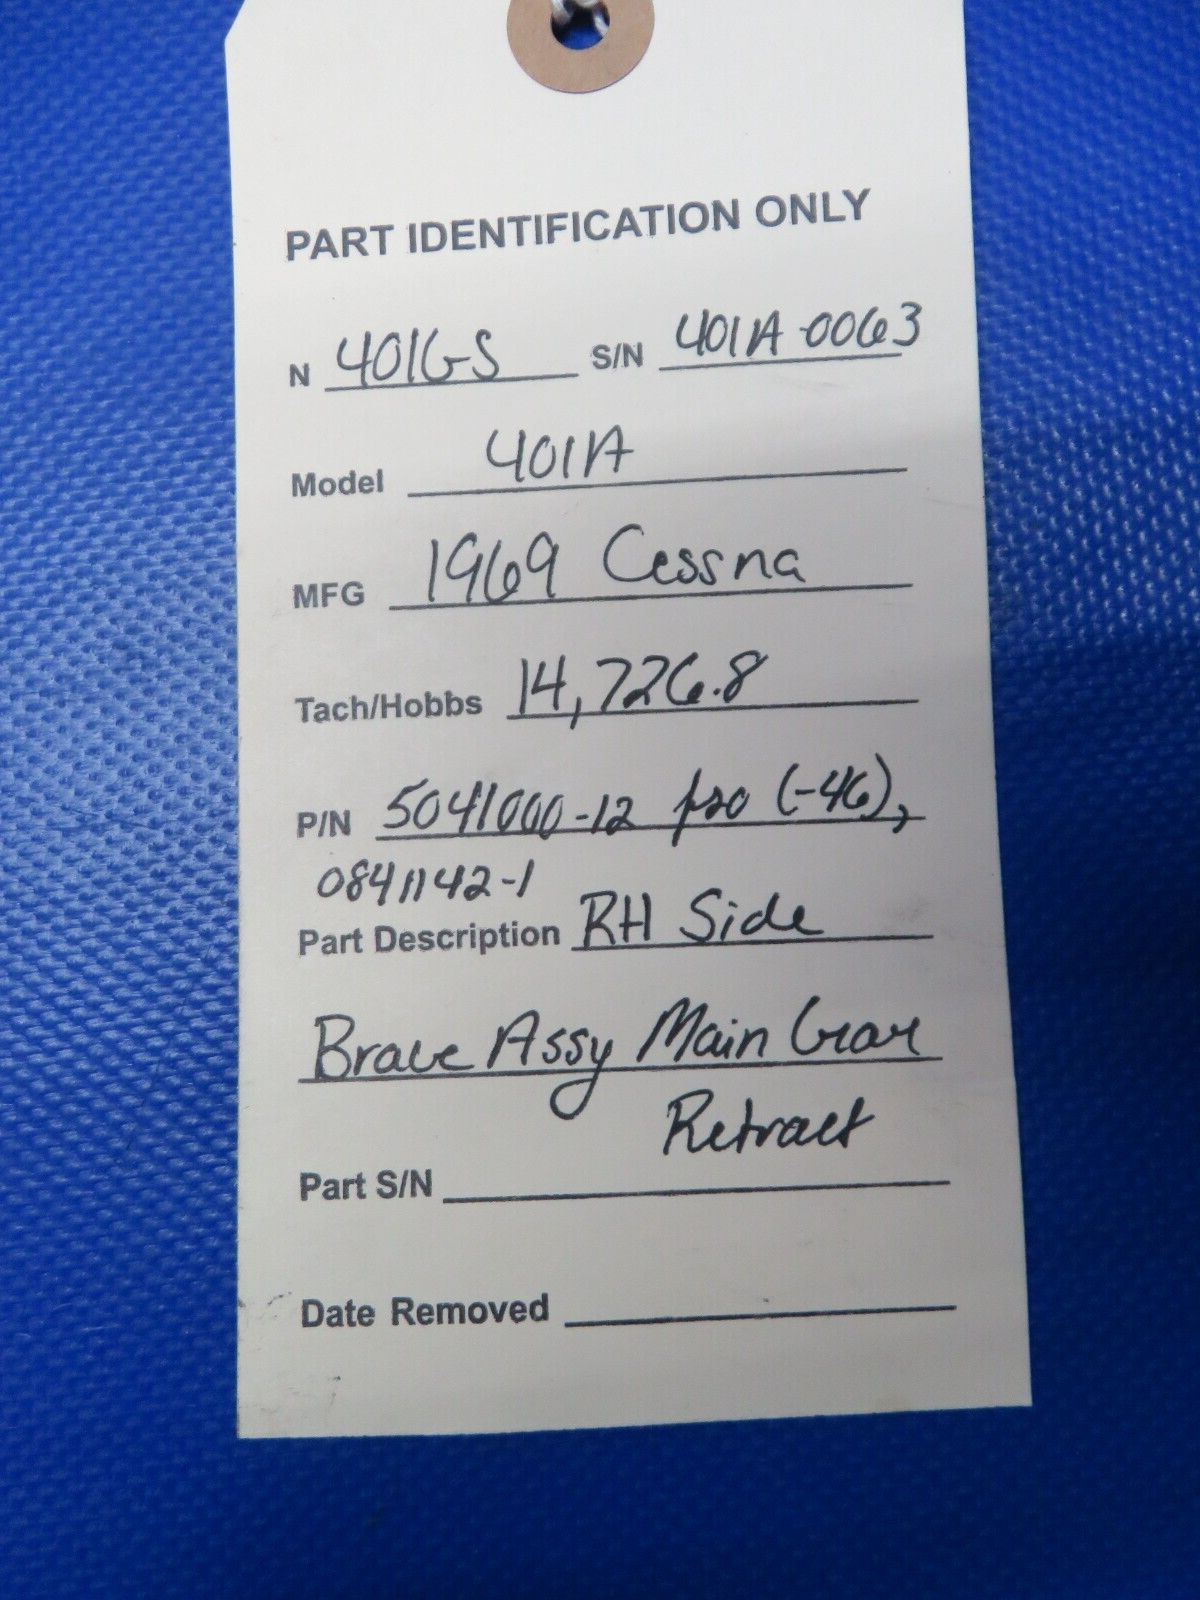 PART IDENTIFICATION ONLY
N 401GS S/N 401A-0063
Model 401A
MFG 1969 Cessna
Tach/Hobbs 14,726.8
P/N 5041000-12 fso (-46),
0841142-1
Part Description RH Side
Brace Assy Main Gear
Retract
Part S/N
Date Removed